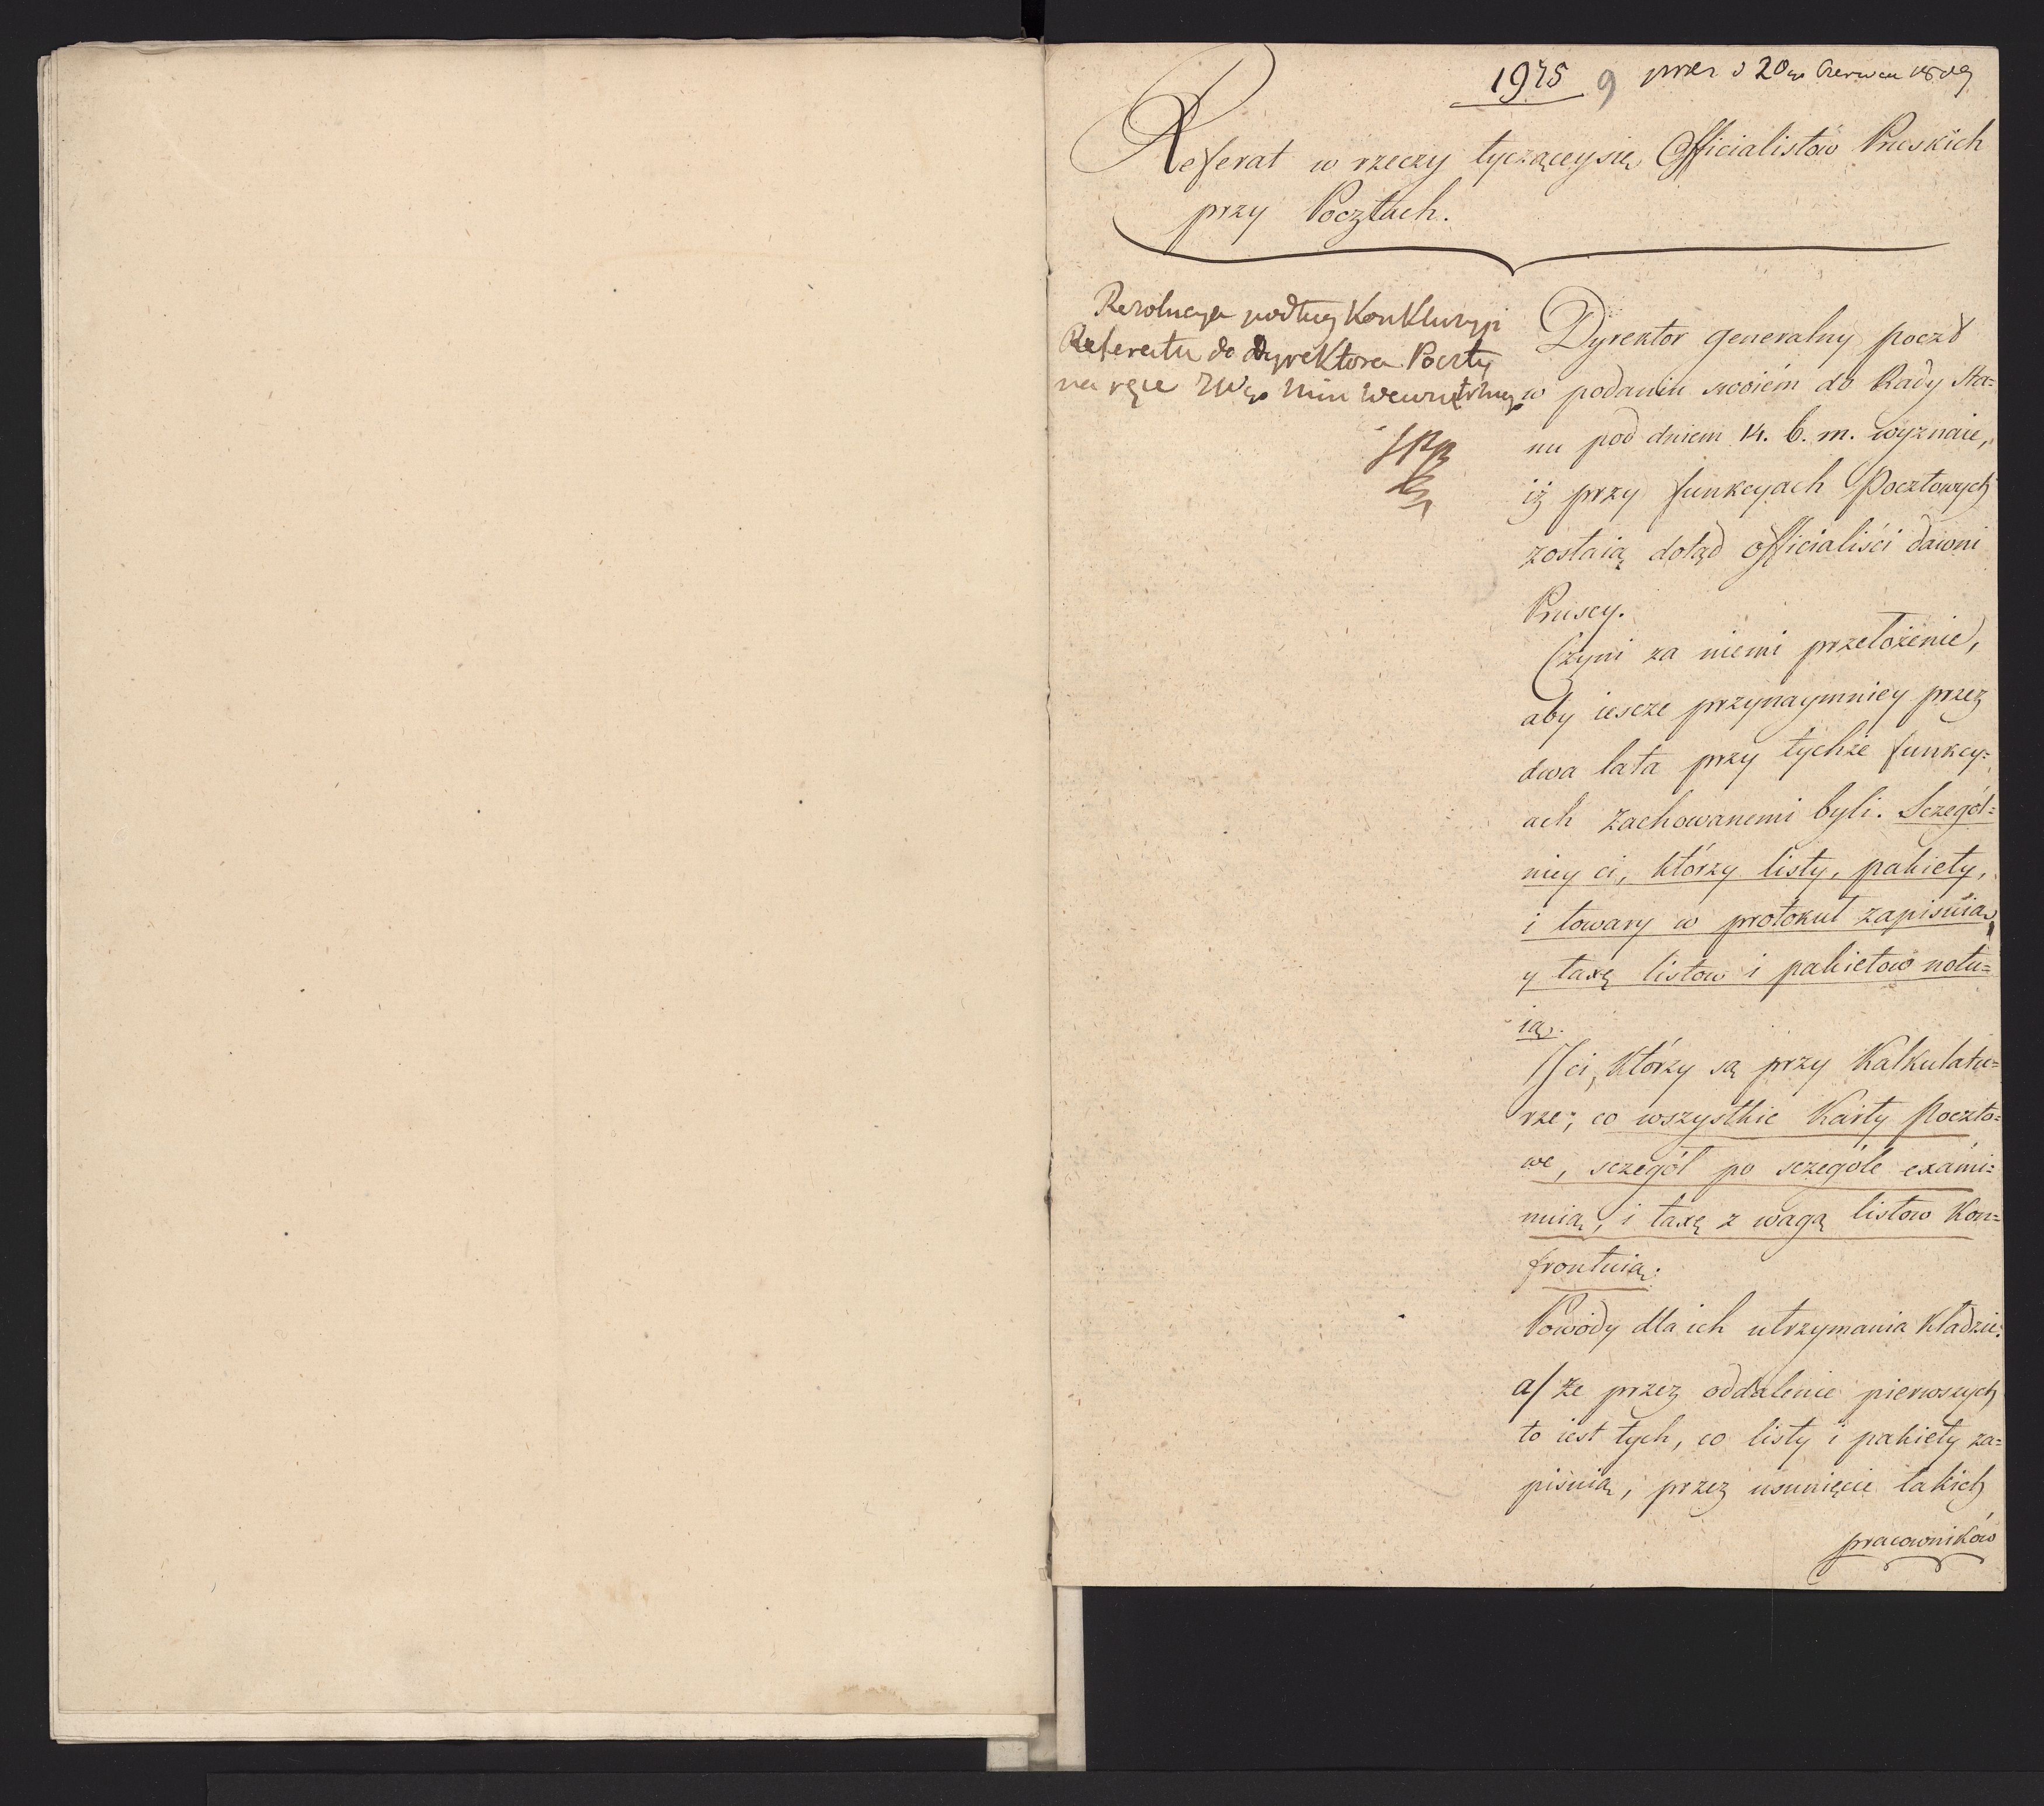 1975 9 prez d 20go Czerwca 1809
Referat w rzeczy tyczącey się Officialistów Pruskich
przy Pocztach.
Rezolucya podług Konkluzyi
Referatu do Dyrektora Poczty
na ręce JWgo Min Wewnętrznego
Dyrektor generalny poczt
w podaniu swoiém do Rady Sta=
nu pod dniem 14. b. m. wyznaie,
iż przy funkcyach Pocztowych
zostaią dotąd officialiści dawni
Pruscy.
Czyni za niemi przełożenie,
aby iescze przynaymniey przez
dwa lata przy tychże funkcy=
ach zachowanemi byli. Sczegól=
niey ci, którzy listy, pakiety,
i towary w protokuł zapisuią,
y taxę listow i pakietow notu=
ią.
I ci, którzy są przy Kalkulatu=
rze; co wszystkie Karty Poczto=
we, sczegół po sczególe exami=
nuią, i taxę z wagą listow kon=
frontuią.
Powody dla ich utrzymania kładzie:
a/ że przez oddalenie pierwszych
to iest tych, co listy i pakiety za=
pisuią, przez usunięcie takich
pracowników